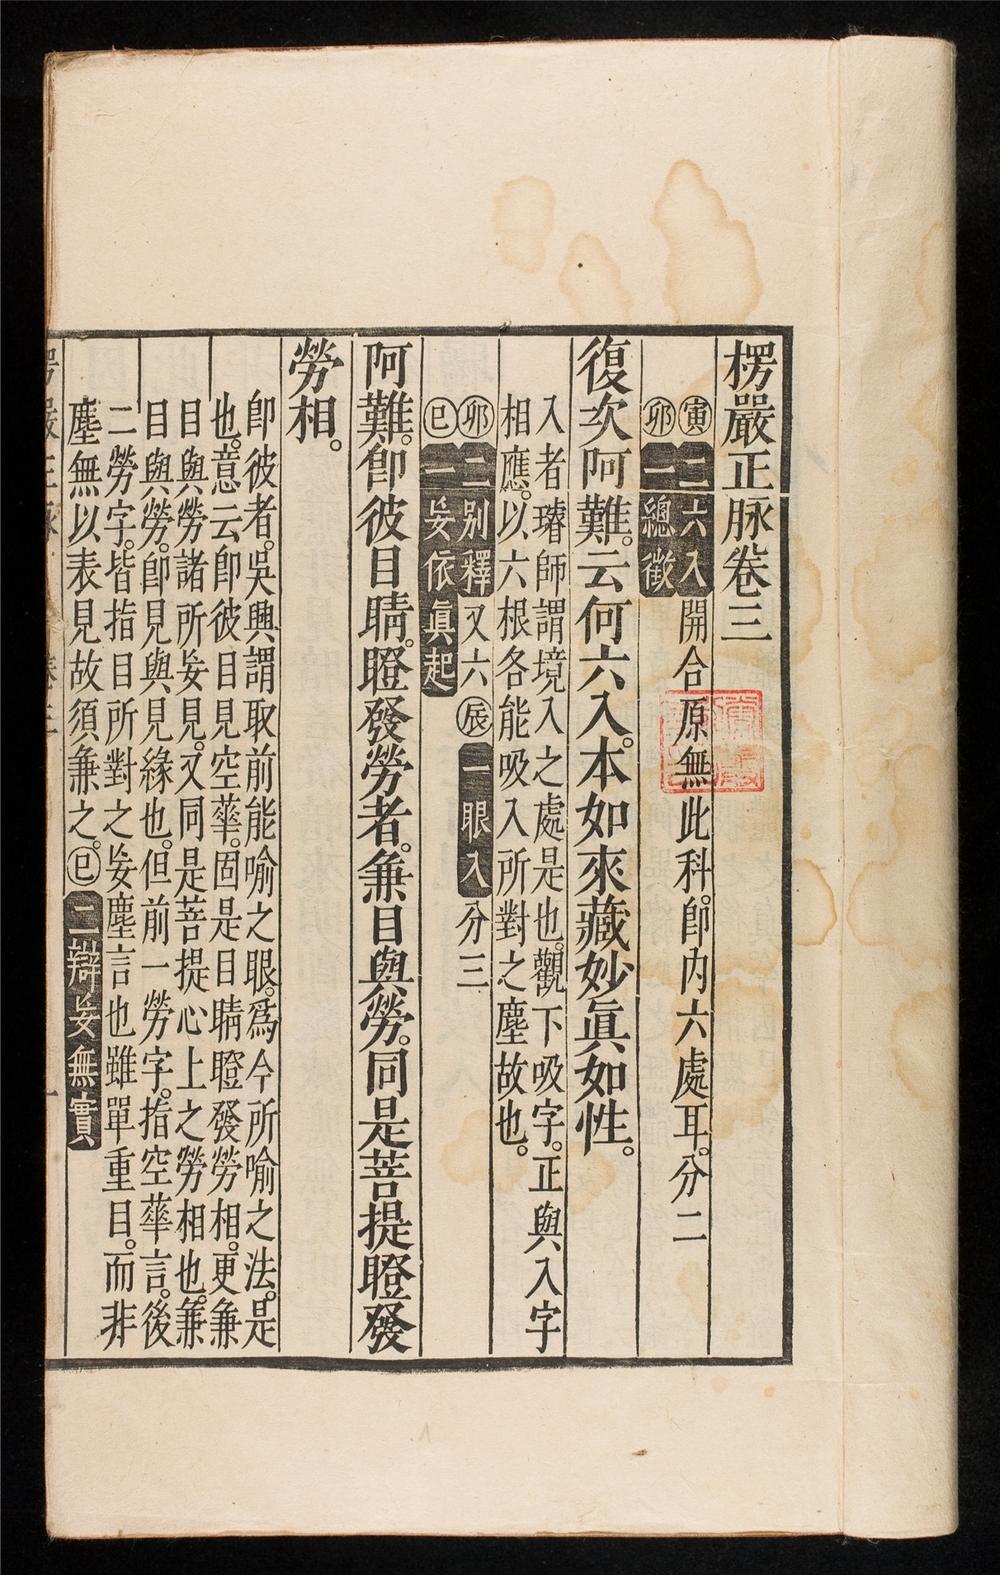 楞嚴正脉卷三
㊞寅二六入開合原無此科。卽内六處耳。分二
卯一總徵
復次阿難。云何六入。本如來藏妙眞如性。
入者璿師謂境入之處是也。觀下吸字。正與入字
相應。以六根各能吸入所對之塵故也。
卯二別釋又六辰一眼入分三
巳一妄依眞起
阿難。卽彼目睛。瞪發勞者。兼目與勞。同是菩提瞪發
勞相。
卽彼者。吳興謂取前能喻之眼。爲今所喻之法。是
也。意云卽彼目見空華。固是目睛瞪發勞相。更兼
目與勞諸所妄見。又同是菩提心上之勞相也。兼
目與勞。卽見與見緣也。但前一勞字。指空華言。後
二勞字。皆指目所對之妄塵言也雖單重目。而非
塵無以表見故須兼之。巳二辯妄無實